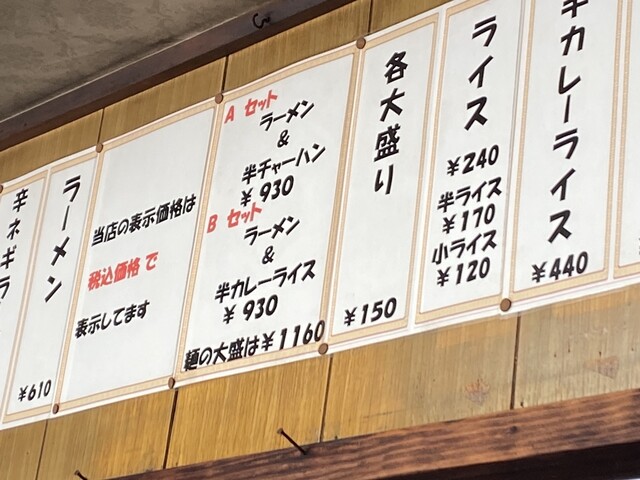 半カレーライス
¥440
ライス
¥240
半ライス
¥170
小ライス
¥120
各大盛り
¥150
A セット
ラーメン
&
半チャーハン
¥930
B セット
ラーメン
&
半カレーライス
¥930
麺の大盛は¥1160
当店の表示価格は
税込価格で
表示してます
ラーメン
¥610
辛ネギラ